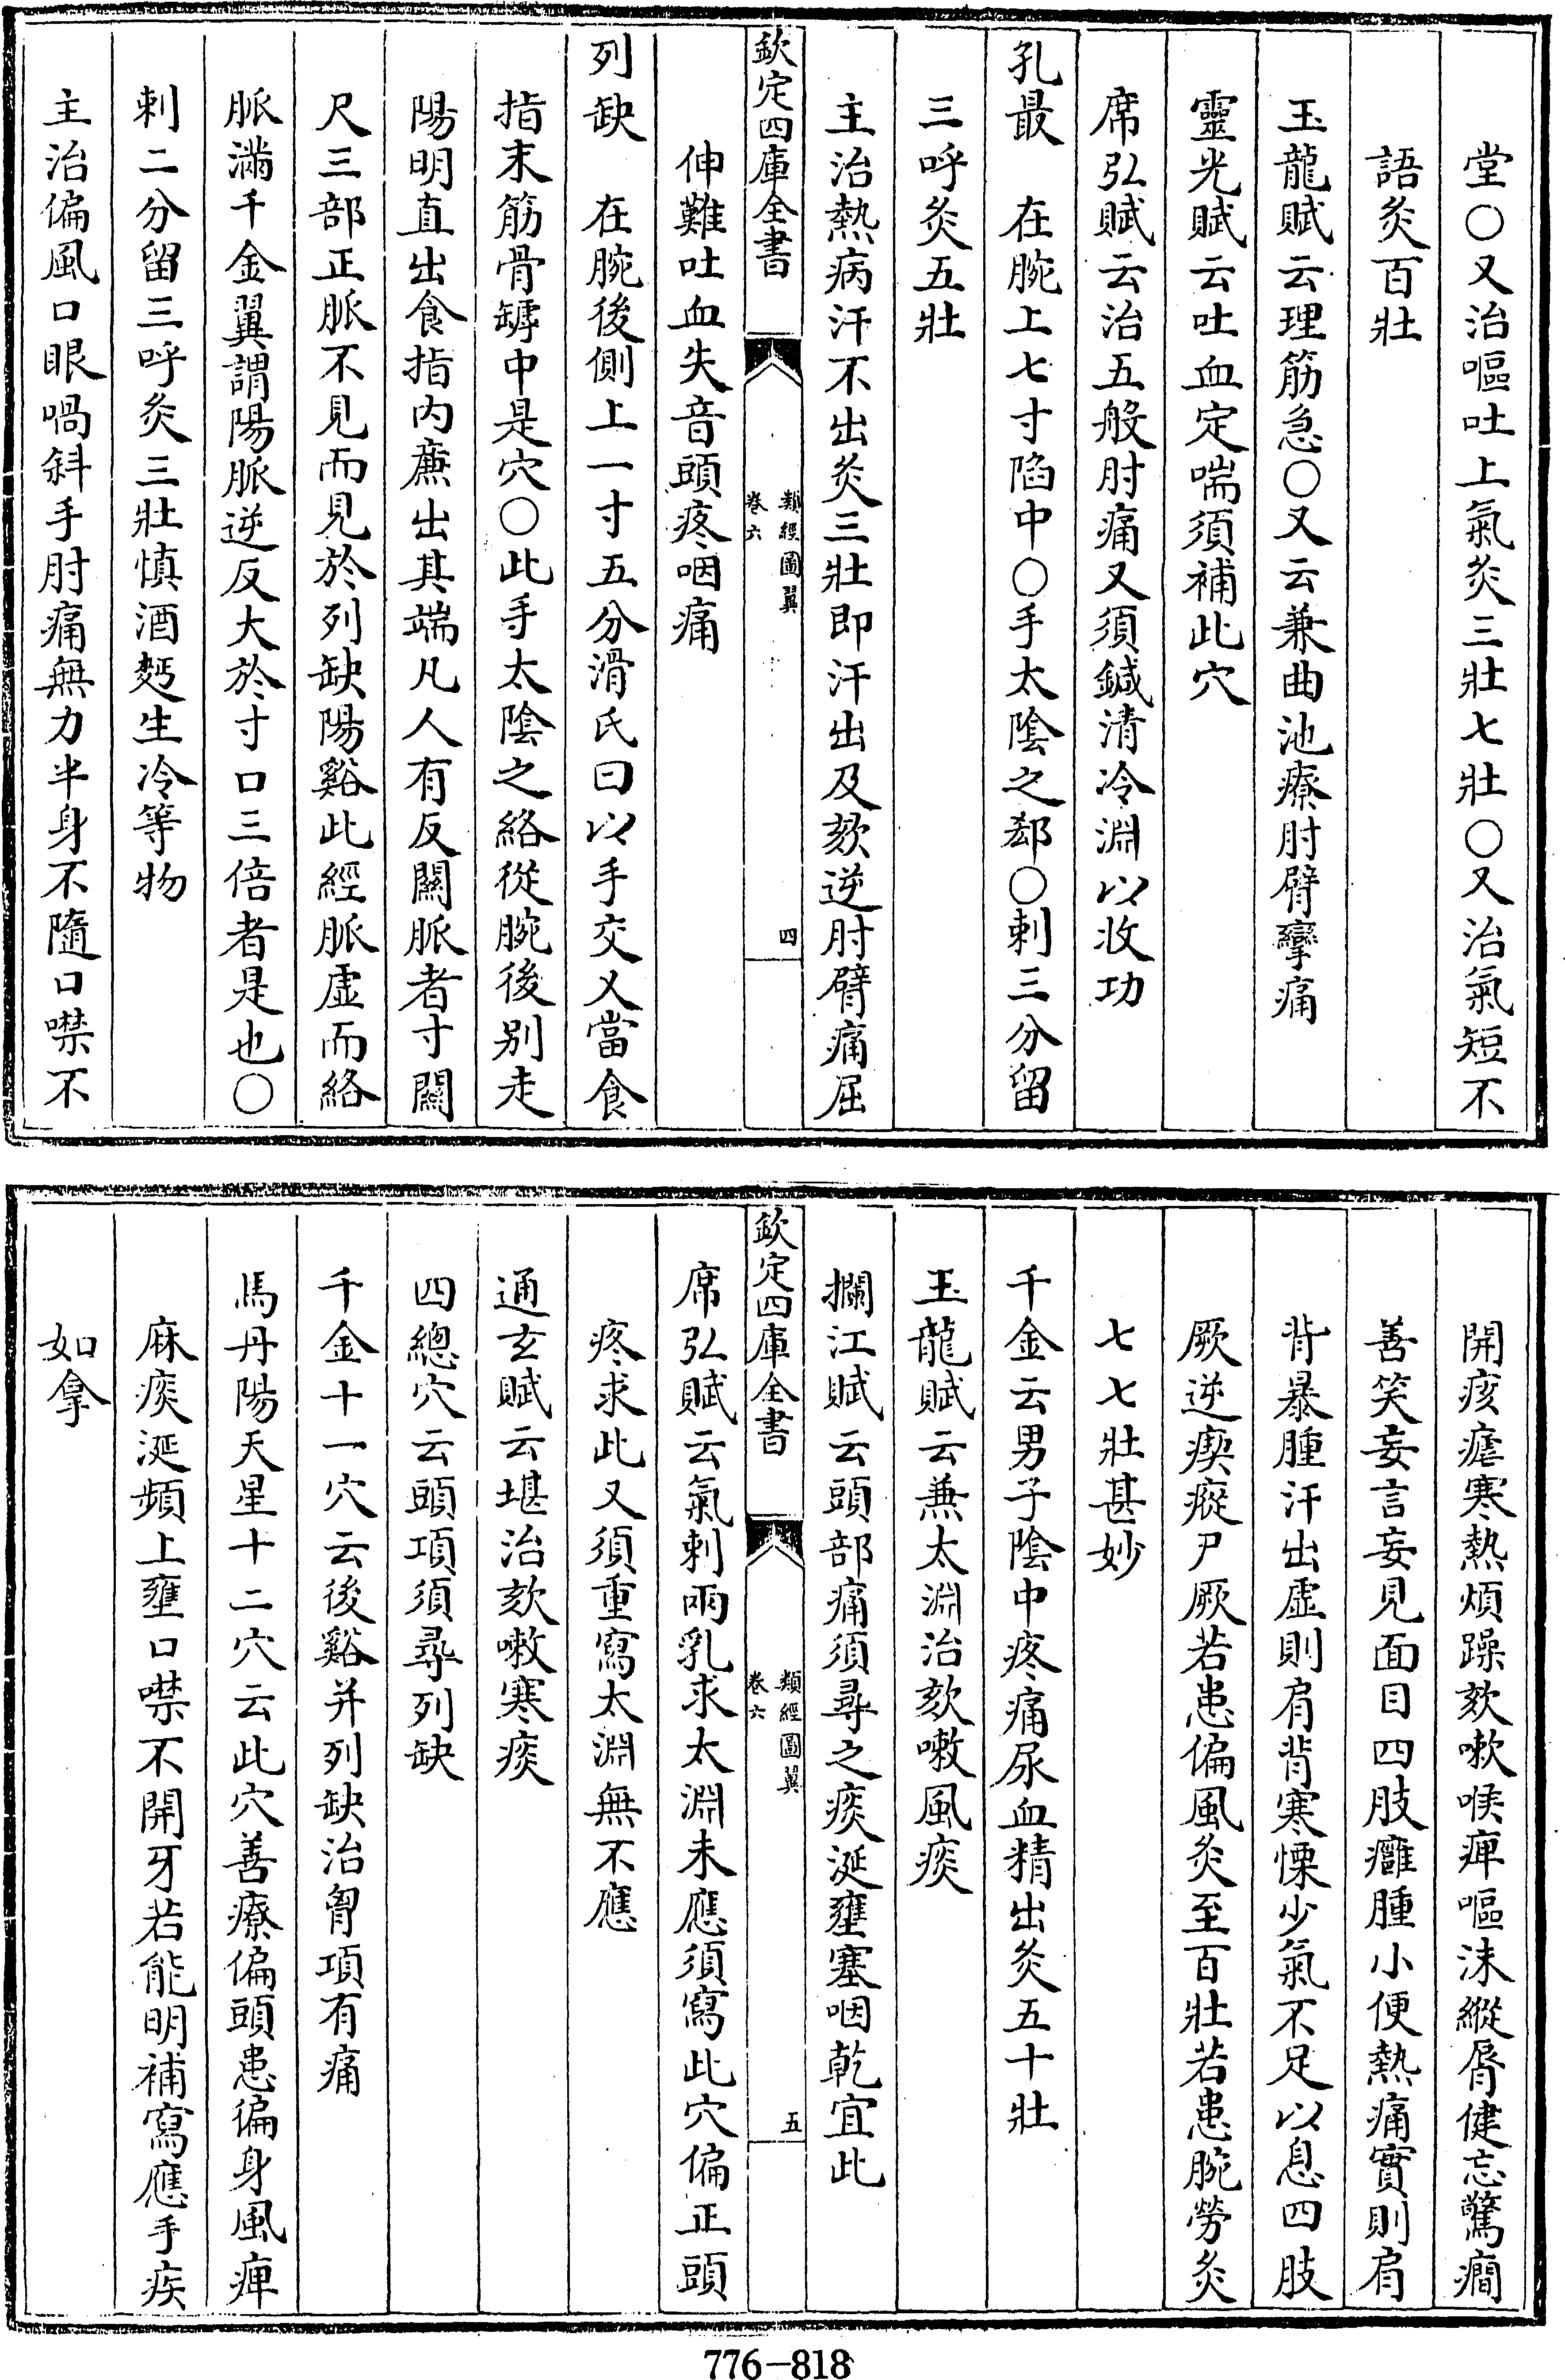 堂○又治嘔吐上氣灸三壯七壯○又治氣短不
語灸百壯
玉龍賦云理筋急○又云兼曲池療肘臂攣痛
靈光賦云吐血定喘須補此穴
席弘賦云治五般肘痛又須鍼清冷淵以收功
孔最　在腕上七寸陷中○手太陰之郄○刺三分留
三呼灸五壯
主治熱病汗不出灸三壯即汗出及欬逆肘臂痛屈
欽定四庫全書
類經圖翼
卷六
四
伸難吐血失音頭疼咽痛
列缺　在腕後側上一寸五分滑氏曰以手交叉當食
指末筋骨罅中是穴○此手太陰之絡從腕後别走
陽明直出食指内廉出其端凡人有反關脈者寸關
尺三部正脈不見而見於列缺陽谿此經脈虚而絡
脈滿千金翼謂陽脈逆反大於寸口三倍者是也○
刺二分留三呼灸三壯慎酒麪生冷等物
主治偏風口眼喎斜手肘痛無力半身不隨口噤不
開痎瘧寒熱煩躁欬嗽喉痺嘔沫縱脣健忘驚癇
善笑妄言妄見面目四肢癰腫小便熱痛實則肩
背暴腫汗出虚則肩背寒慄少氣不足以息四肢
厥逆瘈瘲尸厥若患偏風灸至百壯若患腕勞灸
七七壯甚妙
千金云男子陰中疼痛尿血精出灸五十壯
玉龍賦云兼太淵治欬嗽風痰
攔江賦云頭部痛須尋之痰涎壅塞咽乾宜此
欽定四庫全書
類經圖翼
卷六
五
席弘賦云氣刺兩乳求太淵未應須寫此穴偏正頭
疼求此又須重寫太淵無不應
通玄賦云堪治欬嗽寒痰
四總穴云頭項須尋列缺
千金十一穴云後谿并列缺治胷項有痛
馬丹陽天星十二穴云此穴善療偏頭患徧身風痺
麻痰涎頻上壅口噤不開牙若能明補寫應手疾
如拿
776-818